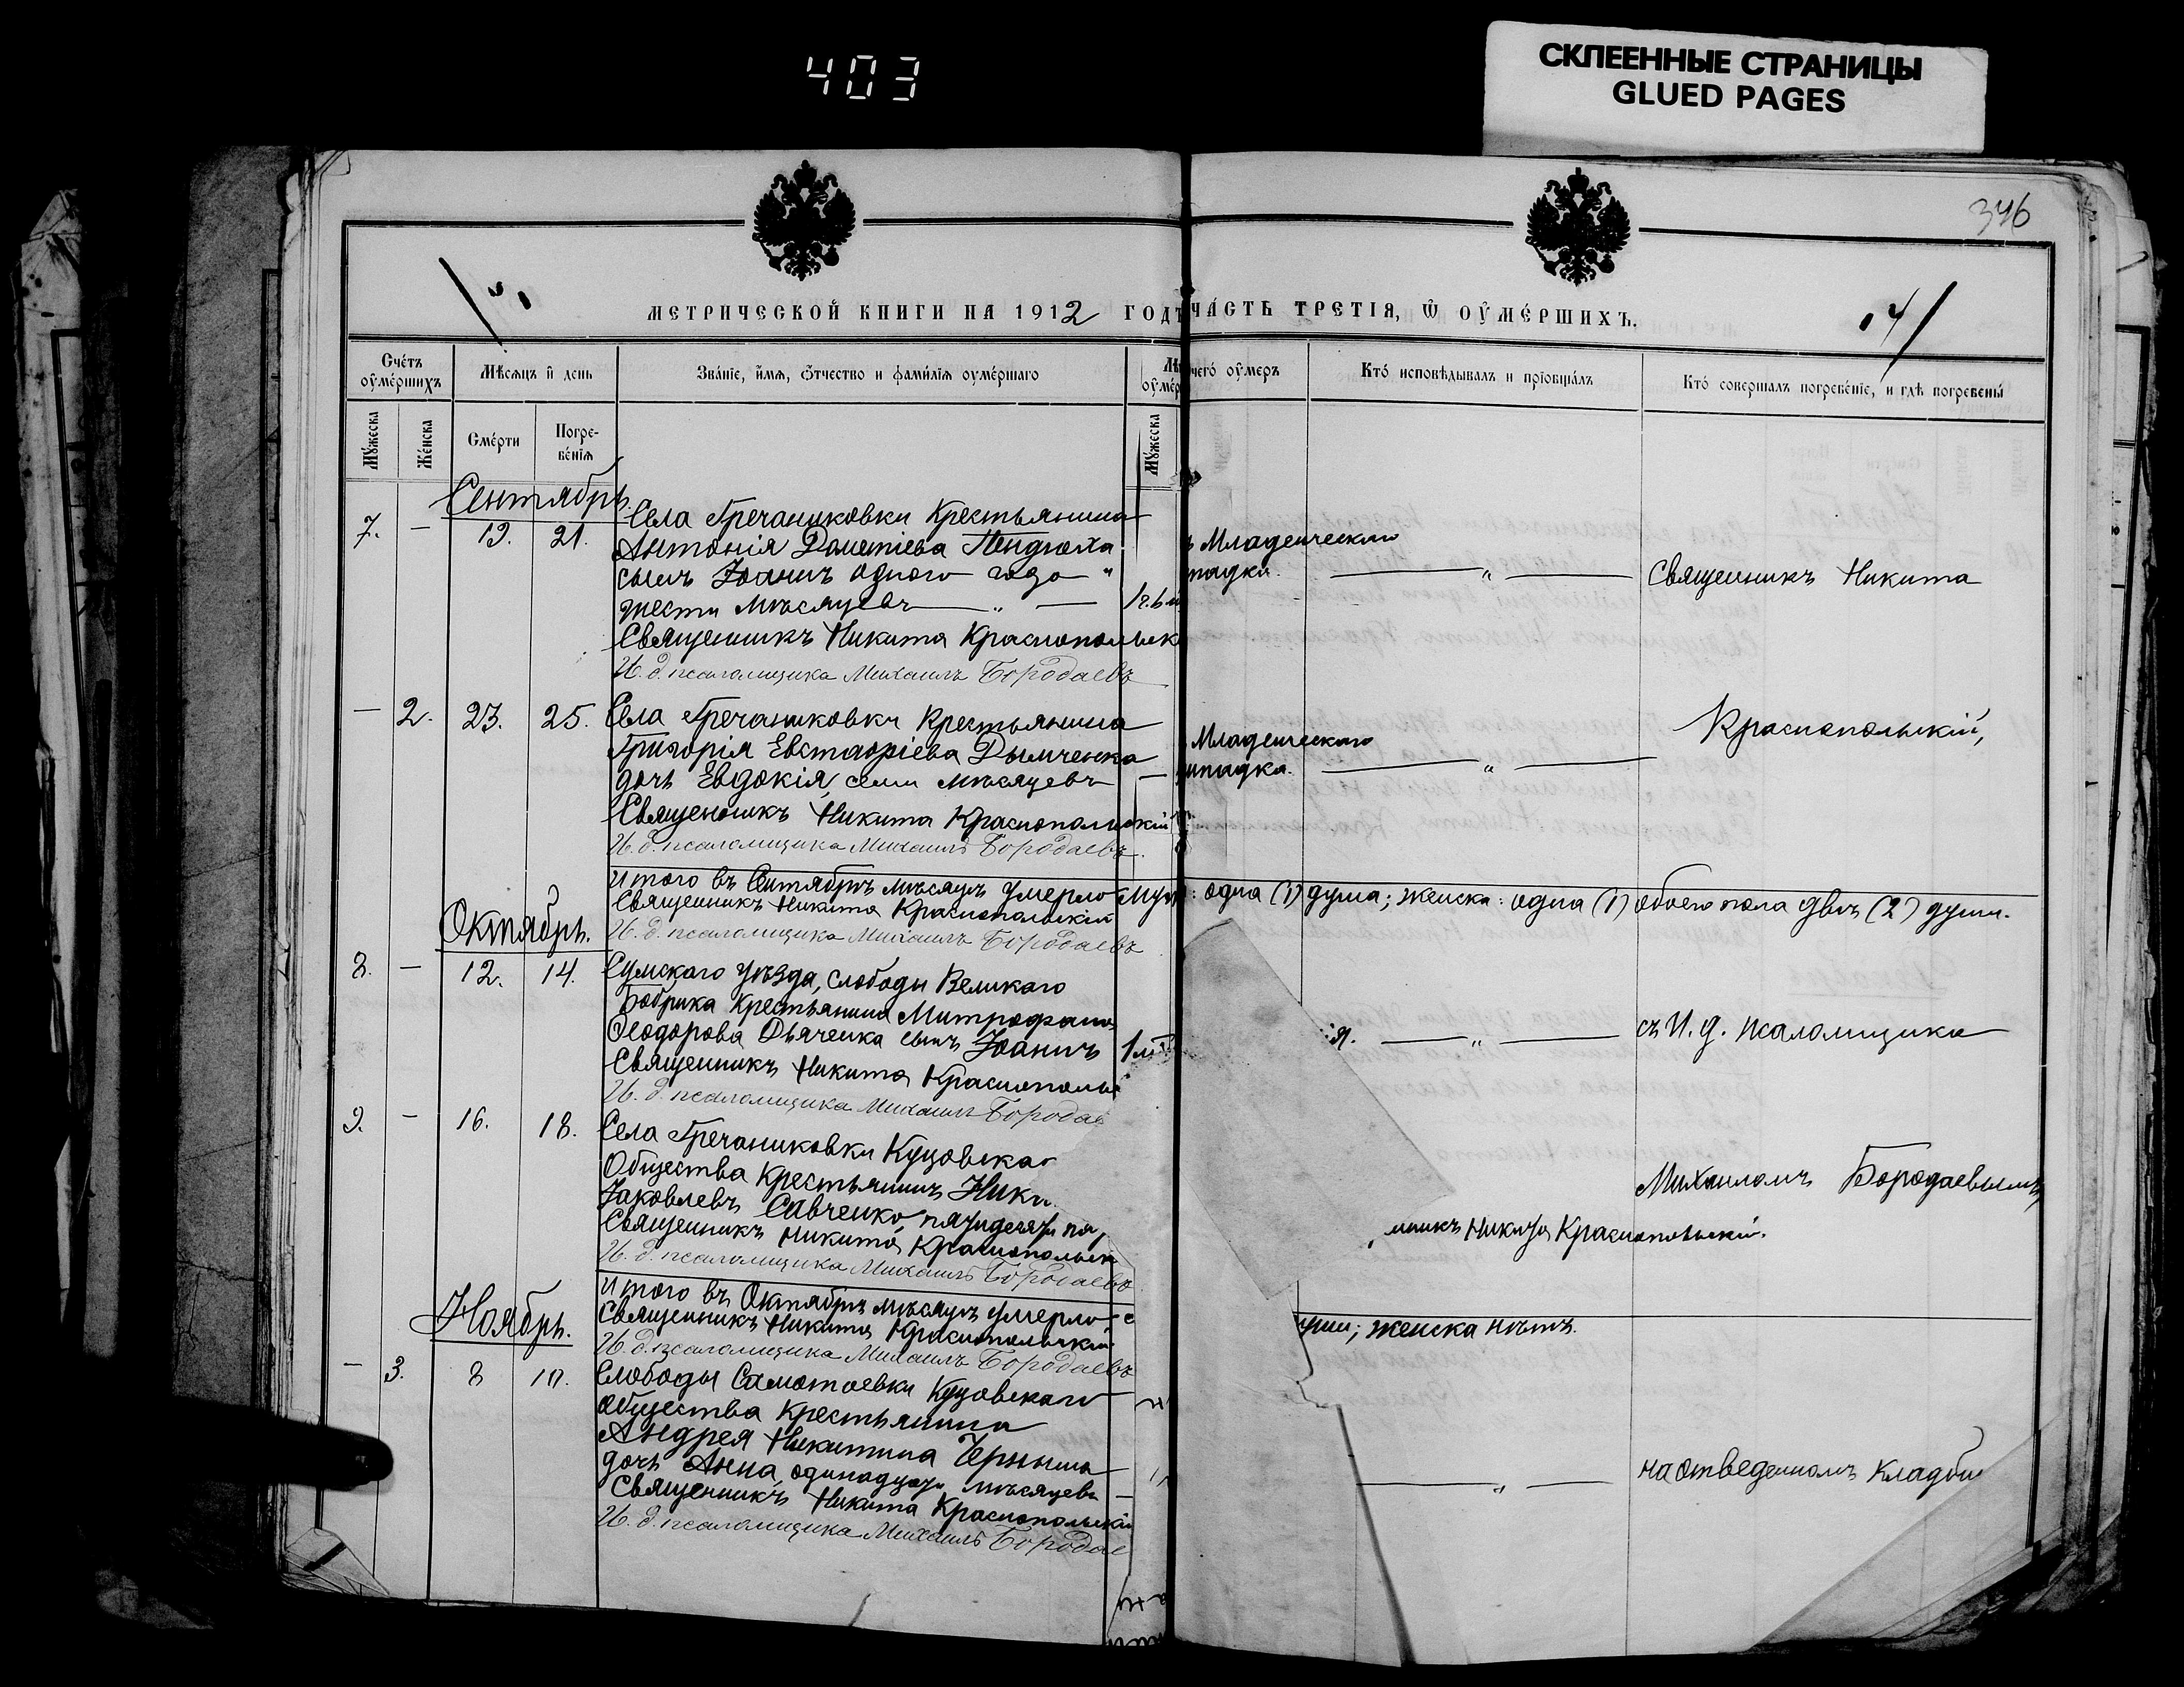 403
СКЛЕЕННЫЕ СТРАНИЦЫ
GLUED PAGES
346
МЕТРИЧЕСКОЙ КНИГИ НА 1912 ГОДЪ
ЧА́СТЬ ТРЕТІЯ, Ѿ ОУ҆МЕ́РШИХЪ.
Счётъ оу҆ме́ршихъ
Мѣсяцъ и҆ день
Зва́ніе, и҆́мя, ѻ҆́тчество и фами́лія оуме́ршаго
чегѡ́ оу҆меръ
Кто́ исповѣ́дывалъ и прїобща́лъ
Кто́ совершалъ погребе́ніе, и гдѣ погребены́
Мꙋ́жеска
Же́нска
Сме́рти
Погребе́нія
Мꙋ́жеска
Сентябрь.
7. — 19. 21. Села Гречаниковки Крестьянина
Антонія Дометіева
сынъ Іоаннъ одного года
шести мѣсяцевъ — „ —
Священникъ Никита Краснопольск
И. д. псаломщика Михаилъ Бородаевъ
Младенческаго
падка. — „ —
Священникъ Никита
— 2. 23. 25. Села Гречаниковки Крестьянина
Григорія Евстафіева Дымченка
дочь Евдокія, семи мѣсяцевъ —
Священникъ Никита Краснопольскій
И. д. псаломщика Михаилъ Бородаевъ.
Младенческаго
падка. — „ —
Краснопольскій,
Итого въ Сентябрѣ мѣсяцѣ умерло муж: одна (1) душа; женска: одна (1) обоего пола двѣ (2) души.
Священникъ Никита Краснопольскій
И. д. псаломщика Михаилъ Бородаевъ
Октябрь.
8. — 12. 14. Сумскаго уѣзда, слободы Великаго
Бобрика Крестьянина Митрофана
Ѳеодорова Дьяченка сынъ Іоаннъ
Священникъ Никита Краснополь
И. д. псаломщика Михаилъ Бородае
я. — „ —
съ И. д. псаломщика
9. — 16. 18. Села Гречаниковки Куцовска
Общества Крестьянинъ Ники
Іаковлевъ Савченко, пятидесяти
Священникъ Никита Краснопольск
И. д. псаломщика Михаилъ Бородаевъ
Михаиломъ Бородаевымъ,
никъ Никита Краснопольскій.
Итого въ Октябрѣ мѣсяцѣ умерло
Священникъ Никита Краснопольскій
И. д. псаломщика Михаилъ Бородаевъ
уши; женска нѣтъ.
Ноябрь.
— 3. 8 10. Слободы Самотоевки Куцовскаго
общества Крестьянина
Андрея Никитина Черныша
дочь Анна, одинадцати мѣсяцевъ —
Священникъ Никита Краснопольскій
И. д. псаломщика Михаилъ Бородае
— „ —
на отведенномъ Кладби